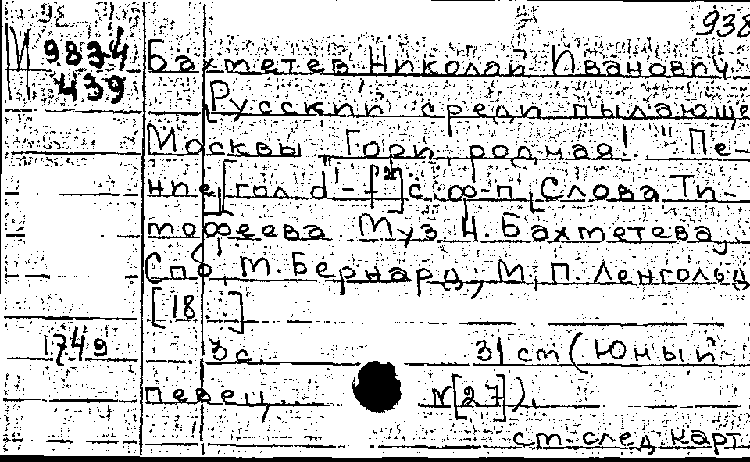 938
М 9834
439
Бахметев Николай Иванович.
Русский среди пылающе
Москвы "Гори, родная!" Пе-
ние [гол. d'-f²] с ф-п. Слова Ти-
мофеева Муз Н. Бахметева,
Спб, М. Бернард; М, П. Ленгольд
[18 ]
1749 3 с. 31 ст (Юный
певец. N [27]).
см. след. карт